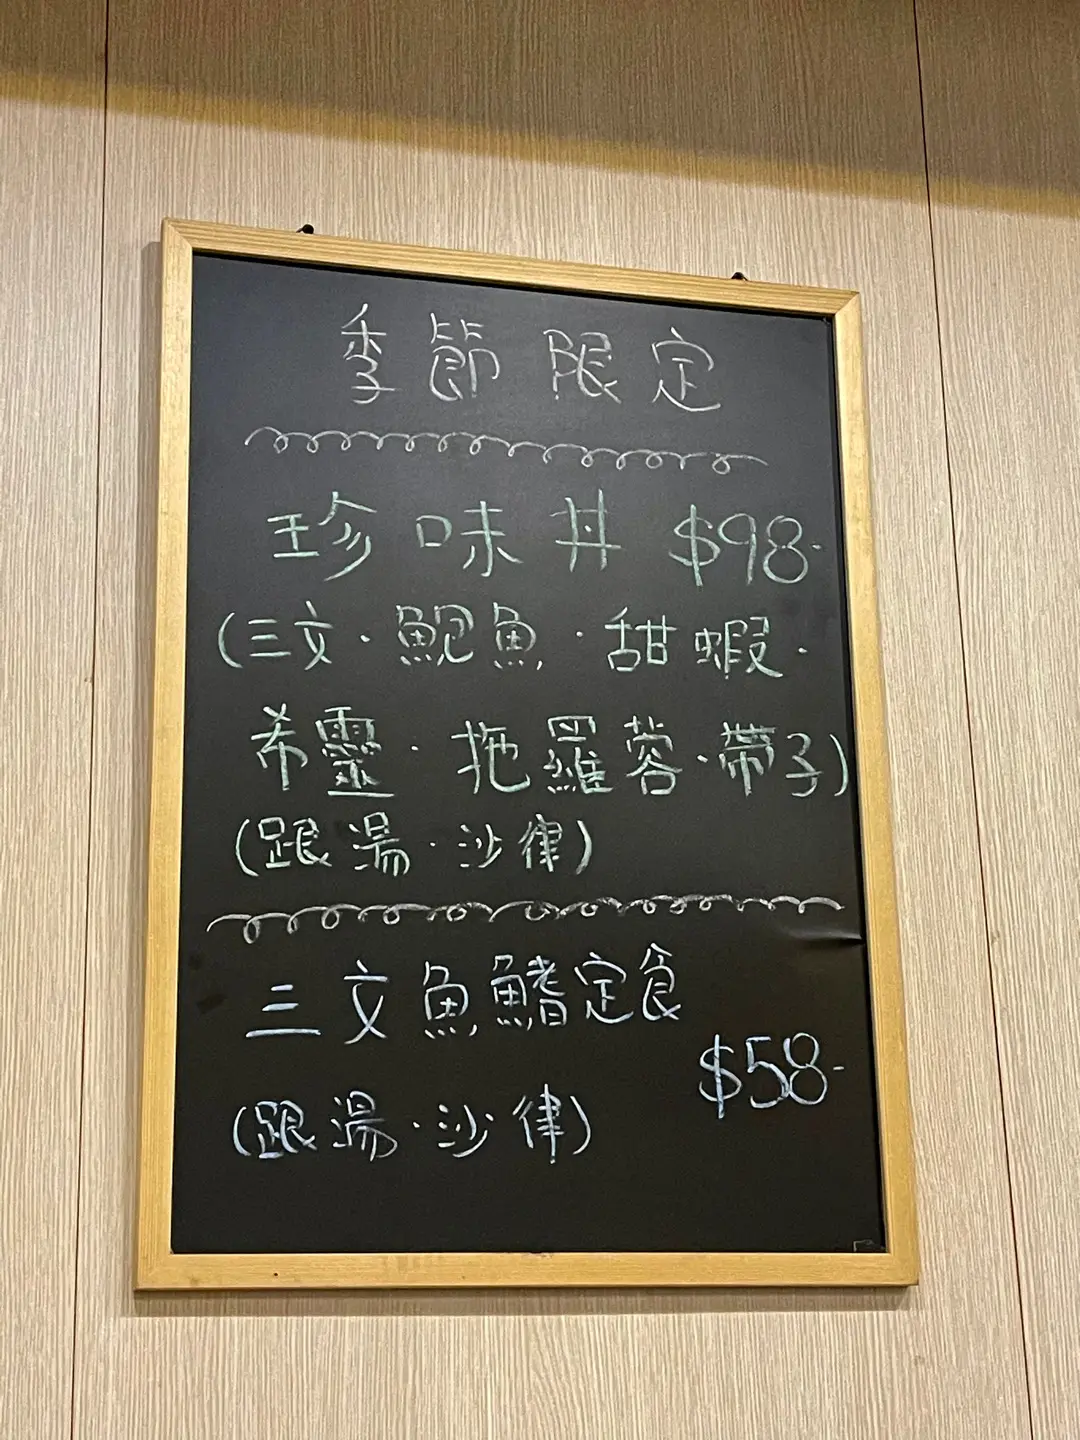 季節限定
珍味丼 $98-
(三文·鮸魚·甜蝦·
希靈·拖羅蓉·帶子)
(跟湯·沙律)
三文魚鰭定食
$58-
(跟湯·沙律)